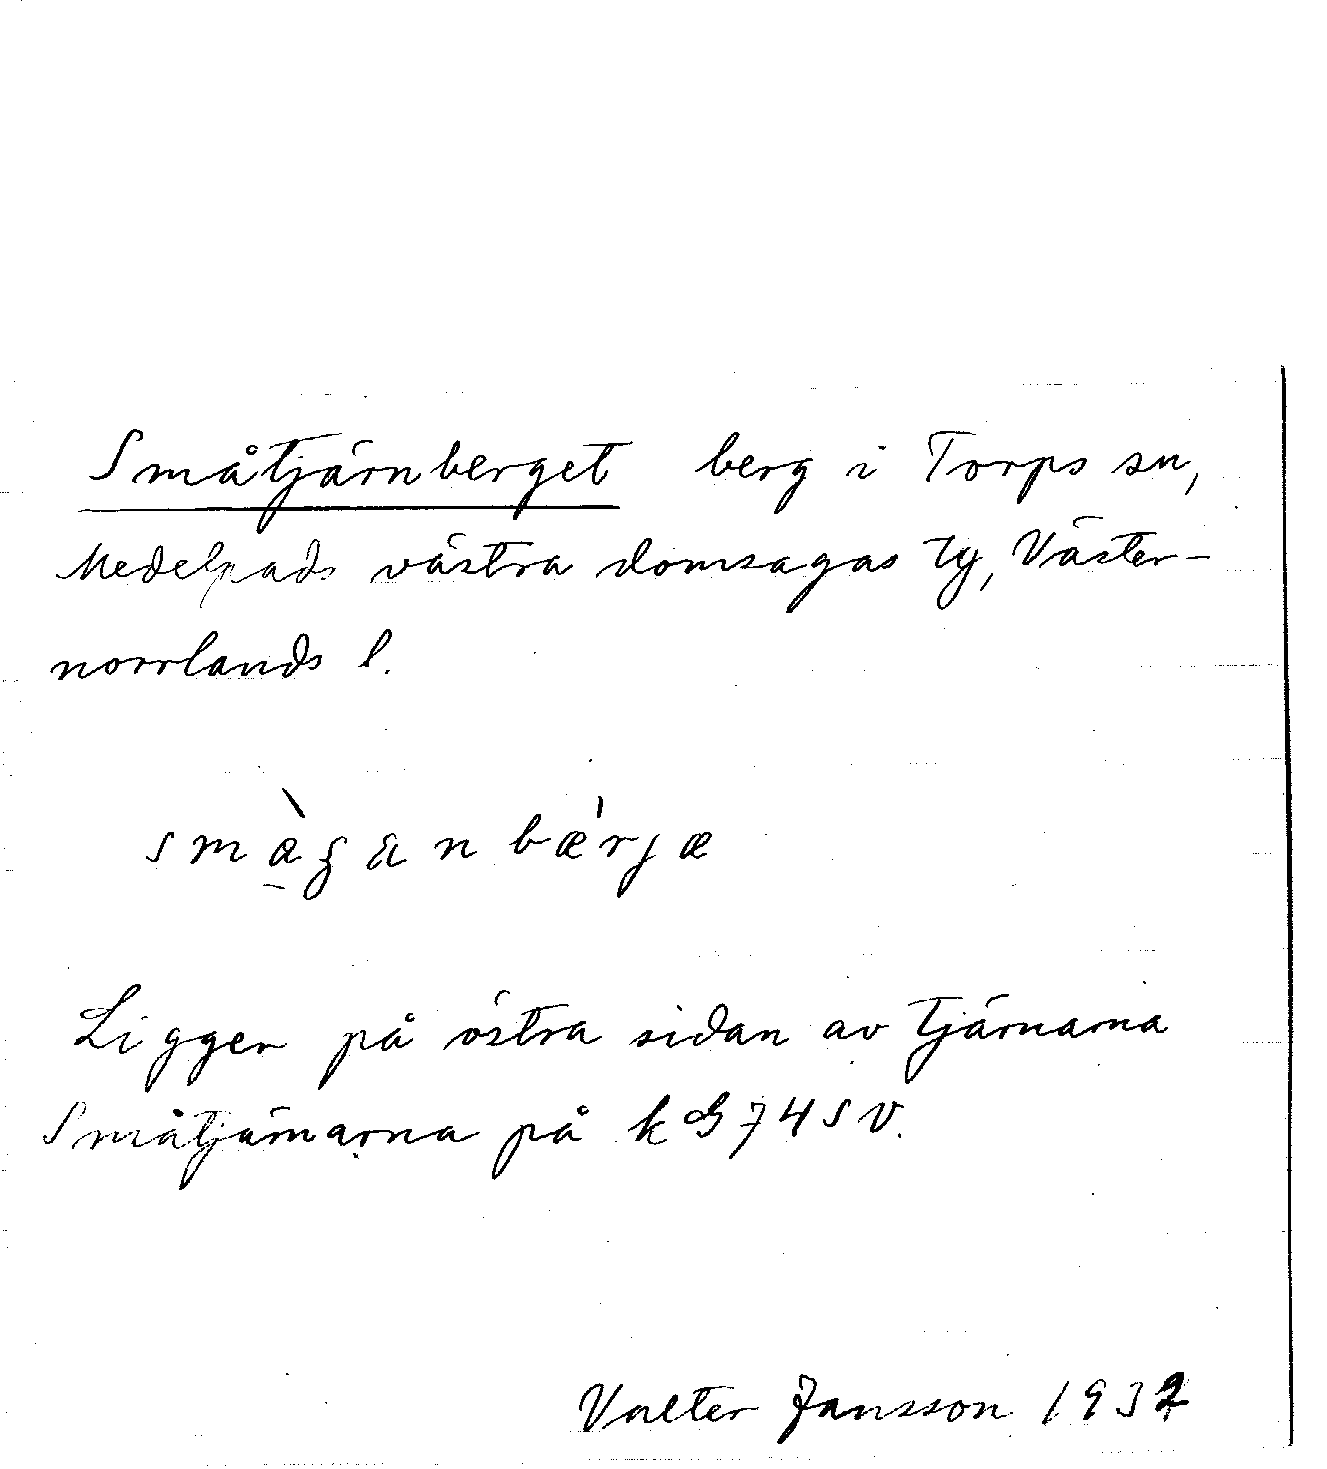 Småtjärnberget berg i Torps sn,
Medelpads västra domsagas tg, Väster-
norrlands l.
Ligger på östra sidan av tjärnarna
Småtjärnarna på kbl 74 SV.
Valter Jansson 1932